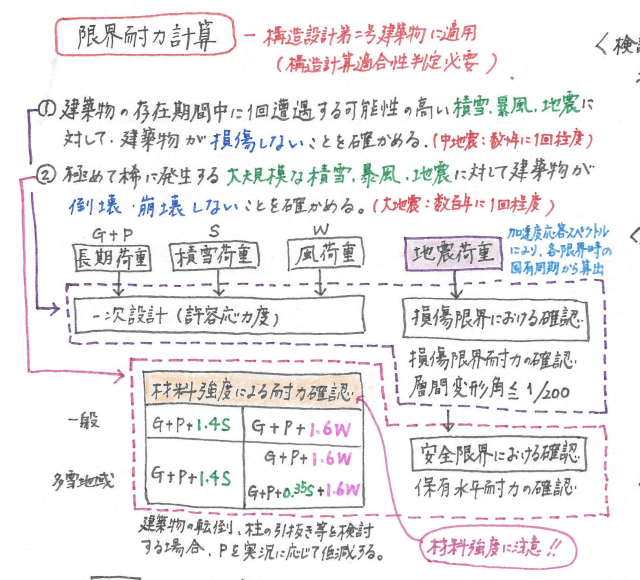 限界耐力計算 - 構造設計第二号建築物に適用
(構造計算適合性判定必要)
<検
① 建築物の存在期間中に1回遭遇する可能性の高い積雪、暴風、地震に
対して、建築物が損傷しないことを確かめる。(中地震:数十年に1回程度)
② 極めて稀に発生する大規模な積雪、暴風、地震に対して建築物が
倒壊・崩壊しないことを確かめる。(大地震:数百年に1回程度)
G+P S W
長期荷重 積雪荷重 風荷重 地震荷重
加速度応答スペクトル
により、各限界時の
固有周期から算出
一次設計(許容応力度)
損傷限界における確認
損傷限界耐力の確認
層間変形角≦1/200
材料強度による耐力確認
一般 G+P+1.4S G+P+1.6W
多雪地域 G+P+1.4S G+P+1.6W
G+P+0.35S+1.6W
安全限界における確認
保有水平耐力の確認
建築物の転倒、柱の引抜き等を検討
する場合、Pを実況に応じて低減する。
材料強度に注意!!